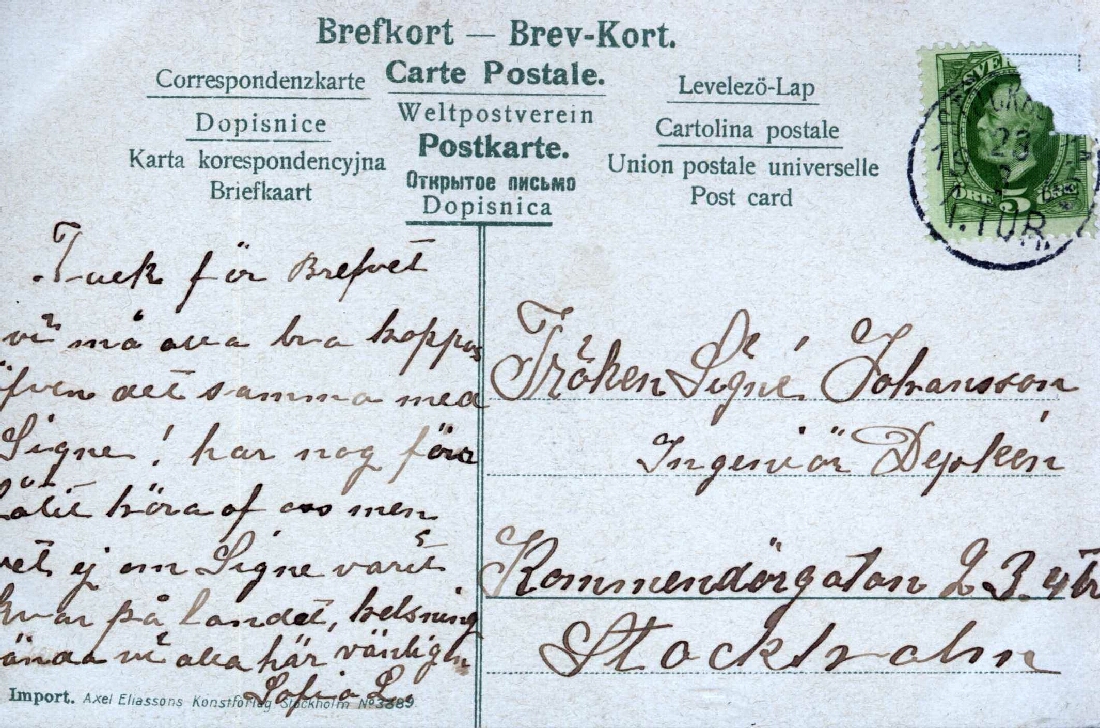 Brefkort — Brev-Kort.
Correspondenzkarte
Carte Postale.
Levelezö-Lap
Dopisnice
Weltpostverein
Cartolina postale
Karta korespondencyjna
Postkarte.
Union postale universelle
Briefkaart
Открытое письмо
Post card
Dopisnica
SVE
5
ÖRE
1.TUR
Tack för Brefvet
vi må alla bra hoppas
äfven det samma med
Signe! har nog förr
låtit höra af oss men
vet ej om Signe varit
kvar på landet, helsning
sända vi alla här vänligen
Sofia L.
Fröken Signe Johansson
Ingeniör Depkén
Kommendörgatan 23. 4 tr
Stockholm
Import. Axel Eliassons Konstförlag Stockholm No 3389